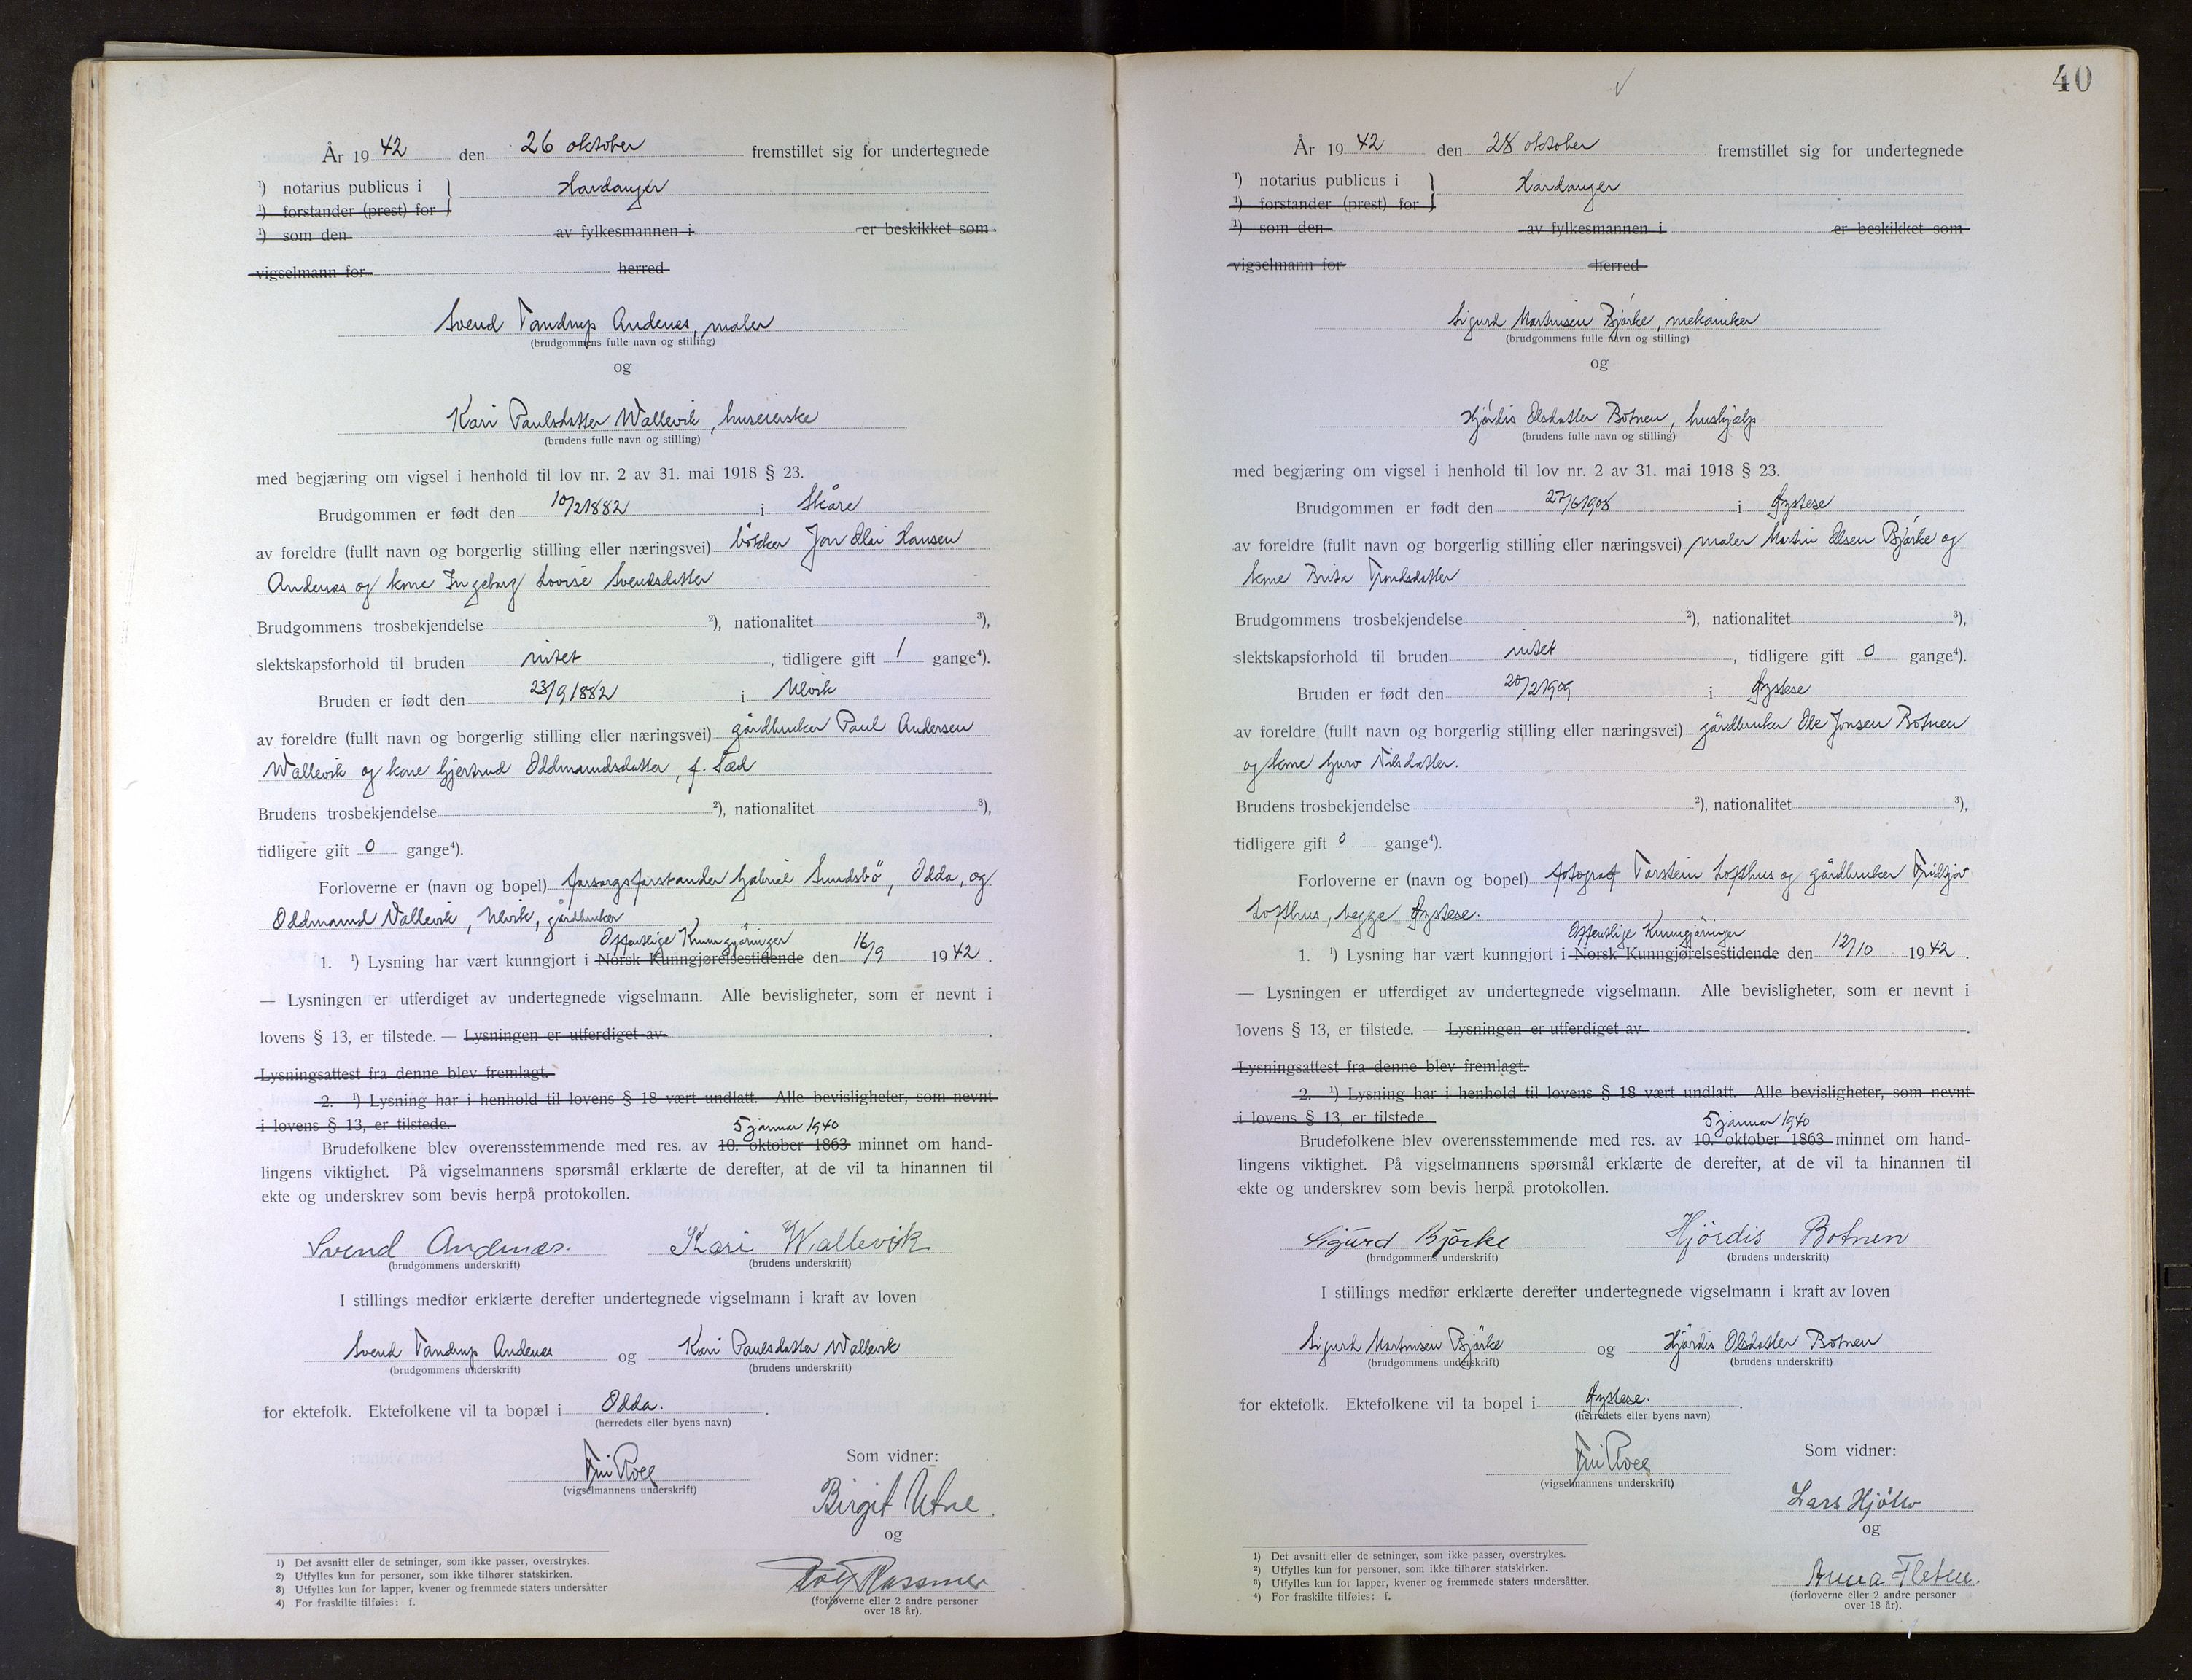 År 1942 den 26 oktober fremstillet sig for undertegnede
¹) notarius publicus i } Hardanger
¹) forstander (prest) for
¹) som den av fylkesmannen i er beskikket som
vigselmann for herred
Svend Tandrup Andenes, maler
(brudgommens fulle navn og stilling)
og
Kari Paulsdatter Wallevik, huseierske
(brudens fulle navn og stilling)
med begjæring om vigsel i henhold til lov nr. 2 av 31. mai 1918 § 23.
Brudgommen er født den 10/2 1882 i Skåre
av foreldre (fullt navn og borgerlig stilling eller næringsvei) bökker Jon Elai Hansen
Andenes og kone Ingeborg Lovise Svendsdatter
Brudgommens trosbekjendelse ²), nationalitet ³),
slektskapsforhold til bruden intet, tidligere gift 1 gange⁴).
Bruden er født den 23/9 1882 i Ulvik
av foreldre (fullt navn og borgerlig stilling eller næringsvei) gårdbruker Paul Andersen
Wallevik og kone Gjertrud Oddmundsdatter, f. Sæd
Brudens trosbekjendelse ²), nationalitet ³),
tidligere gift 0 gange⁴).
Forloverne er (navn og bopel) forsorgsforstander Gabriel Sundsbö, Odda, og
Oddmund Vallevik, Ulvik, gårdbruker
Offentlige Kunngjöringer
1. ¹) Lysning har vært kunngjort i Norsk Kunngjørelsestidende den 16/9 1942.
— Lysningen er utferdiget av undertegnede vigselmann. Alle bevisligheter, som er nevnt i
lovens § 13, er tilstede. — Lysningen er utferdiget av .
Lysningsattest fra denne blev fremlagt.
2. ¹) Lysning har i henhold til lovens § 18 vært undlatt. Alle bevisligheter, som nevnt
i lovens § 13, er tilstede.
5 januar 1940
Brudefolkene blev overensstemmende med res. av 10. oktober 1863 minnet om hand-
lingens viktighet. På vigselmannens spørsmål erklærte de derefter, at de vil ta hinannen til
ekte og underskrev som bevis herpå protokollen.
Svend Andenæs. Kari Wallevik
(brudgommens underskrift) (brudens underskrift)
I stillings medfør erklærte derefter undertegnede vigselmann i kraft av loven
Svend Tandrup Andenes og Kari Paulsdatter Wallevik
(brudgommens underskrift) (brudens underskrift)
for ektefolk. Ektefolkene vil ta bopæl i Odda.
(herredets eller byens navn)
Som vidner:
(vigselmannens underskrift)
Birgit Utne.
og
Rossmer
(forloverne eller 2 andre personer
over 18 år).
1) Det avsnitt eller de setninger, som ikke passer, overstrykes.
2) Utfylles kun for personer, som ikke tilhører statskirken.
3) Utfylles kun for lapper, kvener og fremmede staters undersåtter
4) For fraskilte tilføies: f.
40
År 1942 den 28 oktober fremstillet sig for undertegnede
¹) notarius publicus i } Hardanger
¹) forstander (prest) for
¹) som den av fylkesmannen i er beskikket som
vigselmann for herred
Sigurd Martinsen Bjørke, mekaniker
(brudgommens fulle navn og stilling)
og
Hjördis Olsdatter Botnen, hushjelp
(brudens fulle navn og stilling)
med begjæring om vigsel i henhold til lov nr. 2 av 31. mai 1918 § 23.
Brudgommen er født den 27/6 1908 i Øystese
av foreldre (fullt navn og borgerlig stilling eller næringsvei) maler Martin Olsen Bjørke og
kone Brita Trondsdatter
Brudgommens trosbekjendelse ²), nationalitet ³),
slektskapsforhold til bruden intet, tidligere gift 0 gange⁴).
Bruden er født den 20/2 1909 i Øystese
av foreldre (fullt navn og borgerlig stilling eller næringsvei) gårdbruker Ole Jonsen Botnen
og kone Guro Nilsdatter.
Brudens trosbekjendelse ²), nationalitet ³),
tidligere gift 0 gange⁴).
Forloverne er (navn og bopel) fotograf Torstein Lofthus og gårdbruker Fridtjov
Lofthus, begge Øystese.
Offentlige Kunngjöringer
1. ¹) Lysning har vært kunngjort i Norsk Kunngjørelsestidende den 12/10 1942.
— Lysningen er utferdiget av undertegnede vigselmann. Alle bevisligheter, som er nevnt i
lovens § 13, er tilstede. — Lysningen er utferdiget av .
Lysningsattest fra denne blev fremlagt.
2. ¹) Lysning har i henhold til lovens § 18 vært undlatt. Alle bevisligheter, som nevnt
i lovens § 13, er tilstede.
5 januar 1940
Brudefolkene blev overensstemmende med res. av 10. oktober 1863 minnet om hand-
lingens viktighet. På vigselmannens spørsmål erklærte de derefter, at de vil ta hinannen til
ekte og underskrev som bevis herpå protokollen.
Sigurd Bjørke Hjördis Botnen
(brudgommens underskrift) (brudens underskrift)
I stillings medfør erklærte derefter undertegnede vigselmann i kraft av loven
Sigurd Martinsen Bjørke og Hjördis Olsdatter Botnen
(brudgommens underskrift) (brudens underskrift)
for ektefolk. Ektefolkene vil ta bopel i Øystese.
(herredets eller byens navn)
Som vidner:
(vigselmannens underskrift)
Lars Hjöllo
og
Anna Fleten.
(forloverne eller 2 andre personer
over 18 år).
1) Det avsnitt eller de setninger, som ikke passer, overstrykes.
2) Utfylles kun for personer, som ikke tilhører statskirken.
3) Utfylles kun for lapper, kvener og fremmede staters undersåtter.
4) For fraskilte tilføies: f.